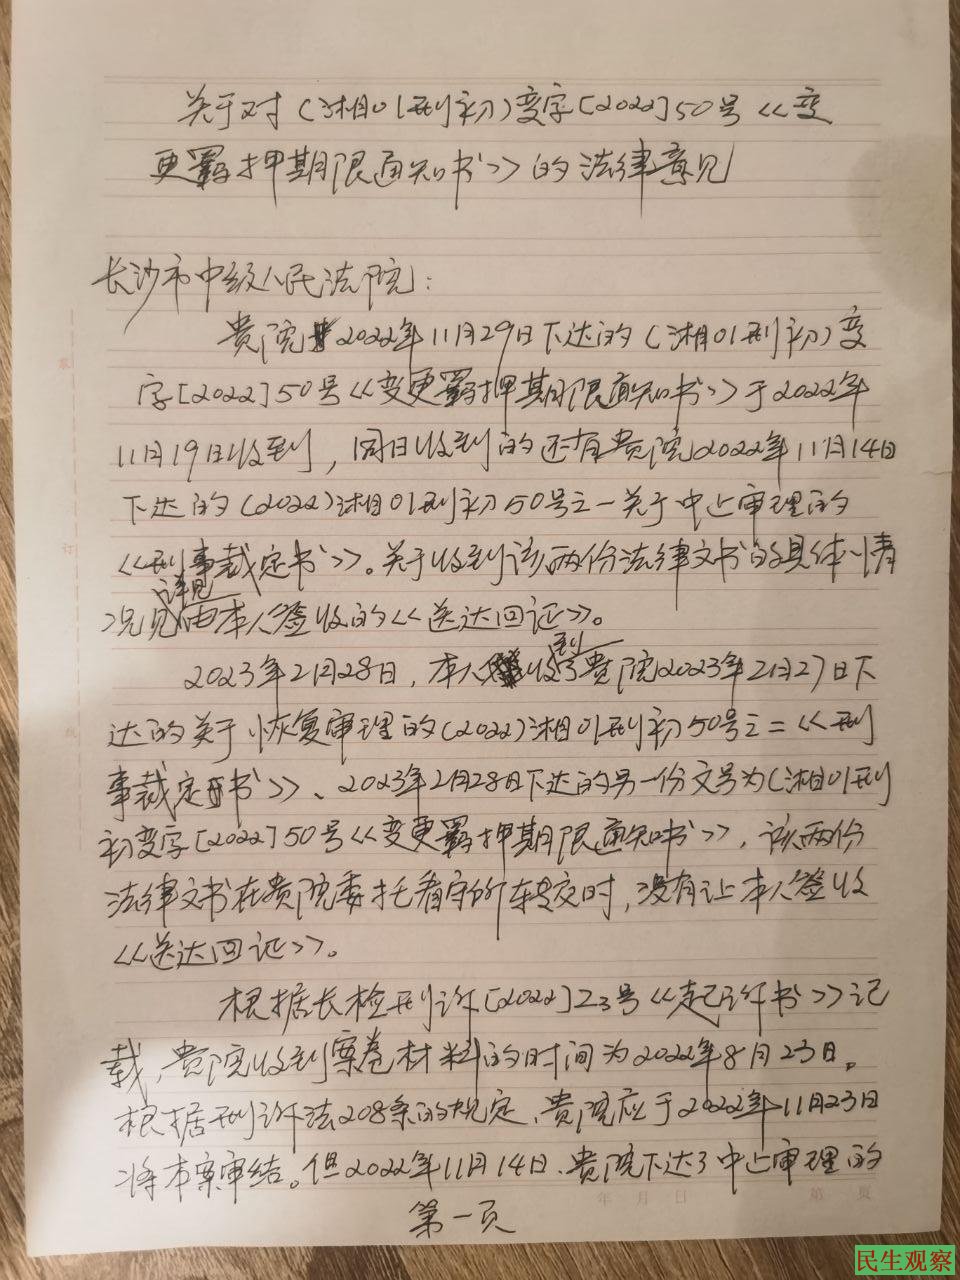 关于对(湘01刑初)变字[2022]50号《变
更羁押期限通知书》的法律意见
长沙市中级人民法院:
贵院2022年11月29日下达的(湘01刑初)变
字[2022]50号《变更羁押期限通知书》于2022年
11月19日收到,同日收到的还有贵院2022年11月14日
下达的(2022)湘01刑初50号之一关于中止审理的
《刑事裁定书》。关于收到该两份法律文书的具体情
况详见由本人签收的《送达回证》。
2023年2月28日,本人收到贵院2023年2月27日下
达的关于恢复审理的(2022)湘01刑初50号之二《刑
事裁定书》、2023年2月28日下达的另一份文号为(湘01刑
初)变字[2022]50号《变更羁押期限通知书》,该两份
法律文书在贵院委托看守所转交时,没有让本人签收
《送达回证》。
根据长检刑诉[2022]Z3号《起诉书》记
载,贵院收到案卷材料的时间为2022年8月23日。
根据刑诉法208条的规定,贵院应于2022年11月23日
将本案审结。但2022年11月14日,贵院下达了中止审理的
第一页
装
订
线
年 月 日 第 页
民生观察